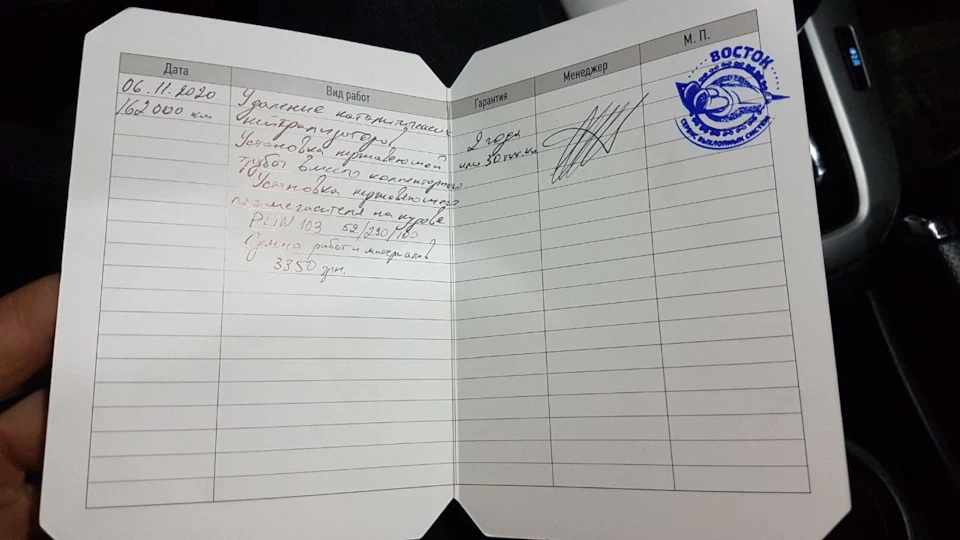 Дата Вид работ Гарантия Менеджер М. П.
06.11.2020
162 000 км
Удаление каталитических
нейтрализаторов
Установка нержавеющей
трубы вместо коллекторного
Установка нержавеющего
пламегасителя на кузове
52/290/100
Сумма работ и материалов
3350 грн.
2 года
или 30 тыс. км
ВОСТОК
СЕРВИС ВЫХЛОПНЫХ СИСТЕМ